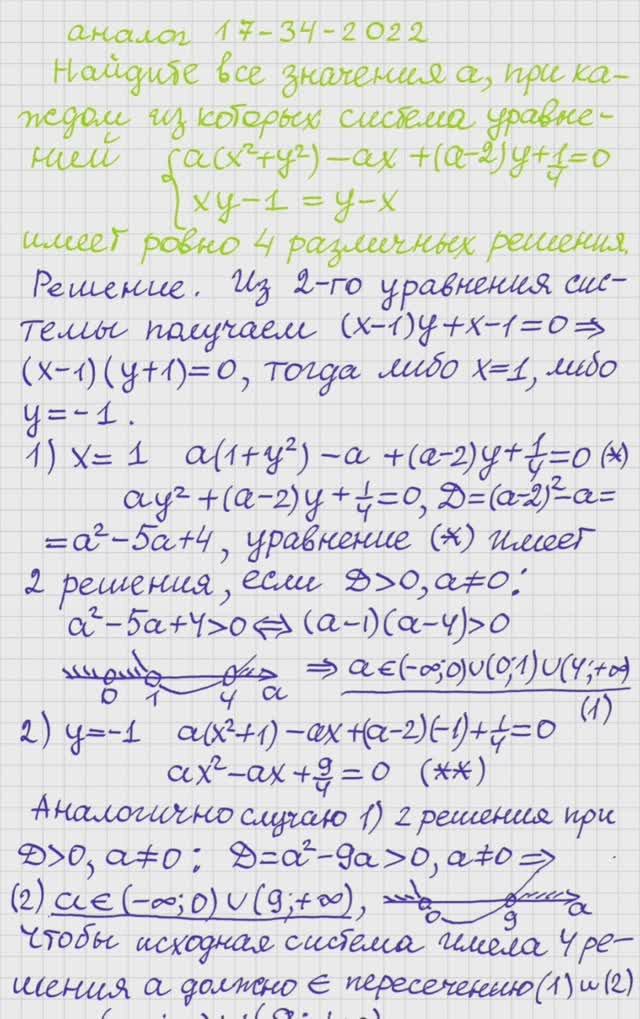 аналог 17-34-2022
Найдите все значения a, при ка-
ждом из которых система уравне-
ний { a(x²+y²)-ax+(a-2)y+1/4=0
xy-1=y-x
имеет ровно 4 различных решения.
Решение. Из 2-го уравнения сис-
темы получаем (x-1)y+x-1=0 ⇒
(x-1)(y+1)=0, тогда либо x=1, либо
y=-1.
1) x=1 a(1+y²)-a+(a-2)y+1/4=0 (*)
ay²+(a-2)y+1/4=0, D=(a-2)²-a=
=a²-5a+4, уравнение (*) имеет
2 решения, если D>0, a≠0:
a²-5a+4>0 ⇔ (a-1)(a-4)>0
0 1 4 a ⇒ a∈(-∞;0)∪(0;1)∪(4;+∞)
(1)
2) y=-1 a(x²+1)-ax+(a-2)(-1)+1/4=0
ax²-ax+9/4=0 (**)
Аналогично случаю 1) 2 решения при
D>0, a≠0: D=a²-9a>0, a≠0 ⇒
(2) a∈(-∞;0)∪(9;+∞), 0 9 a
Чтобы исходная система имела 4 ре-
шения a должно ∈ пересечению (1) и (2)